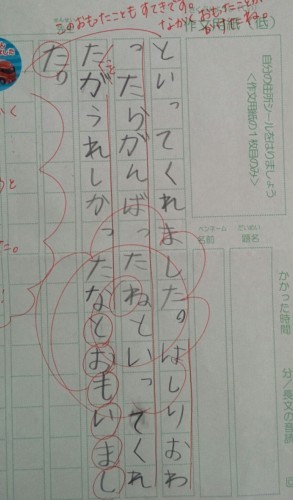 このおもったこともすてきです。
ながくおもったことが
かけたね。
作文用紙
自分の住所シールをはりましょう
<作文用紙の1枚目のみ>
ペンネーム
名前
だいめい
題名
かかった時間
分/長文の音読
といってくれました。はしりおわ
ったらがんばったねといってくれ
たことがうれしかったなとおもいまし
た。